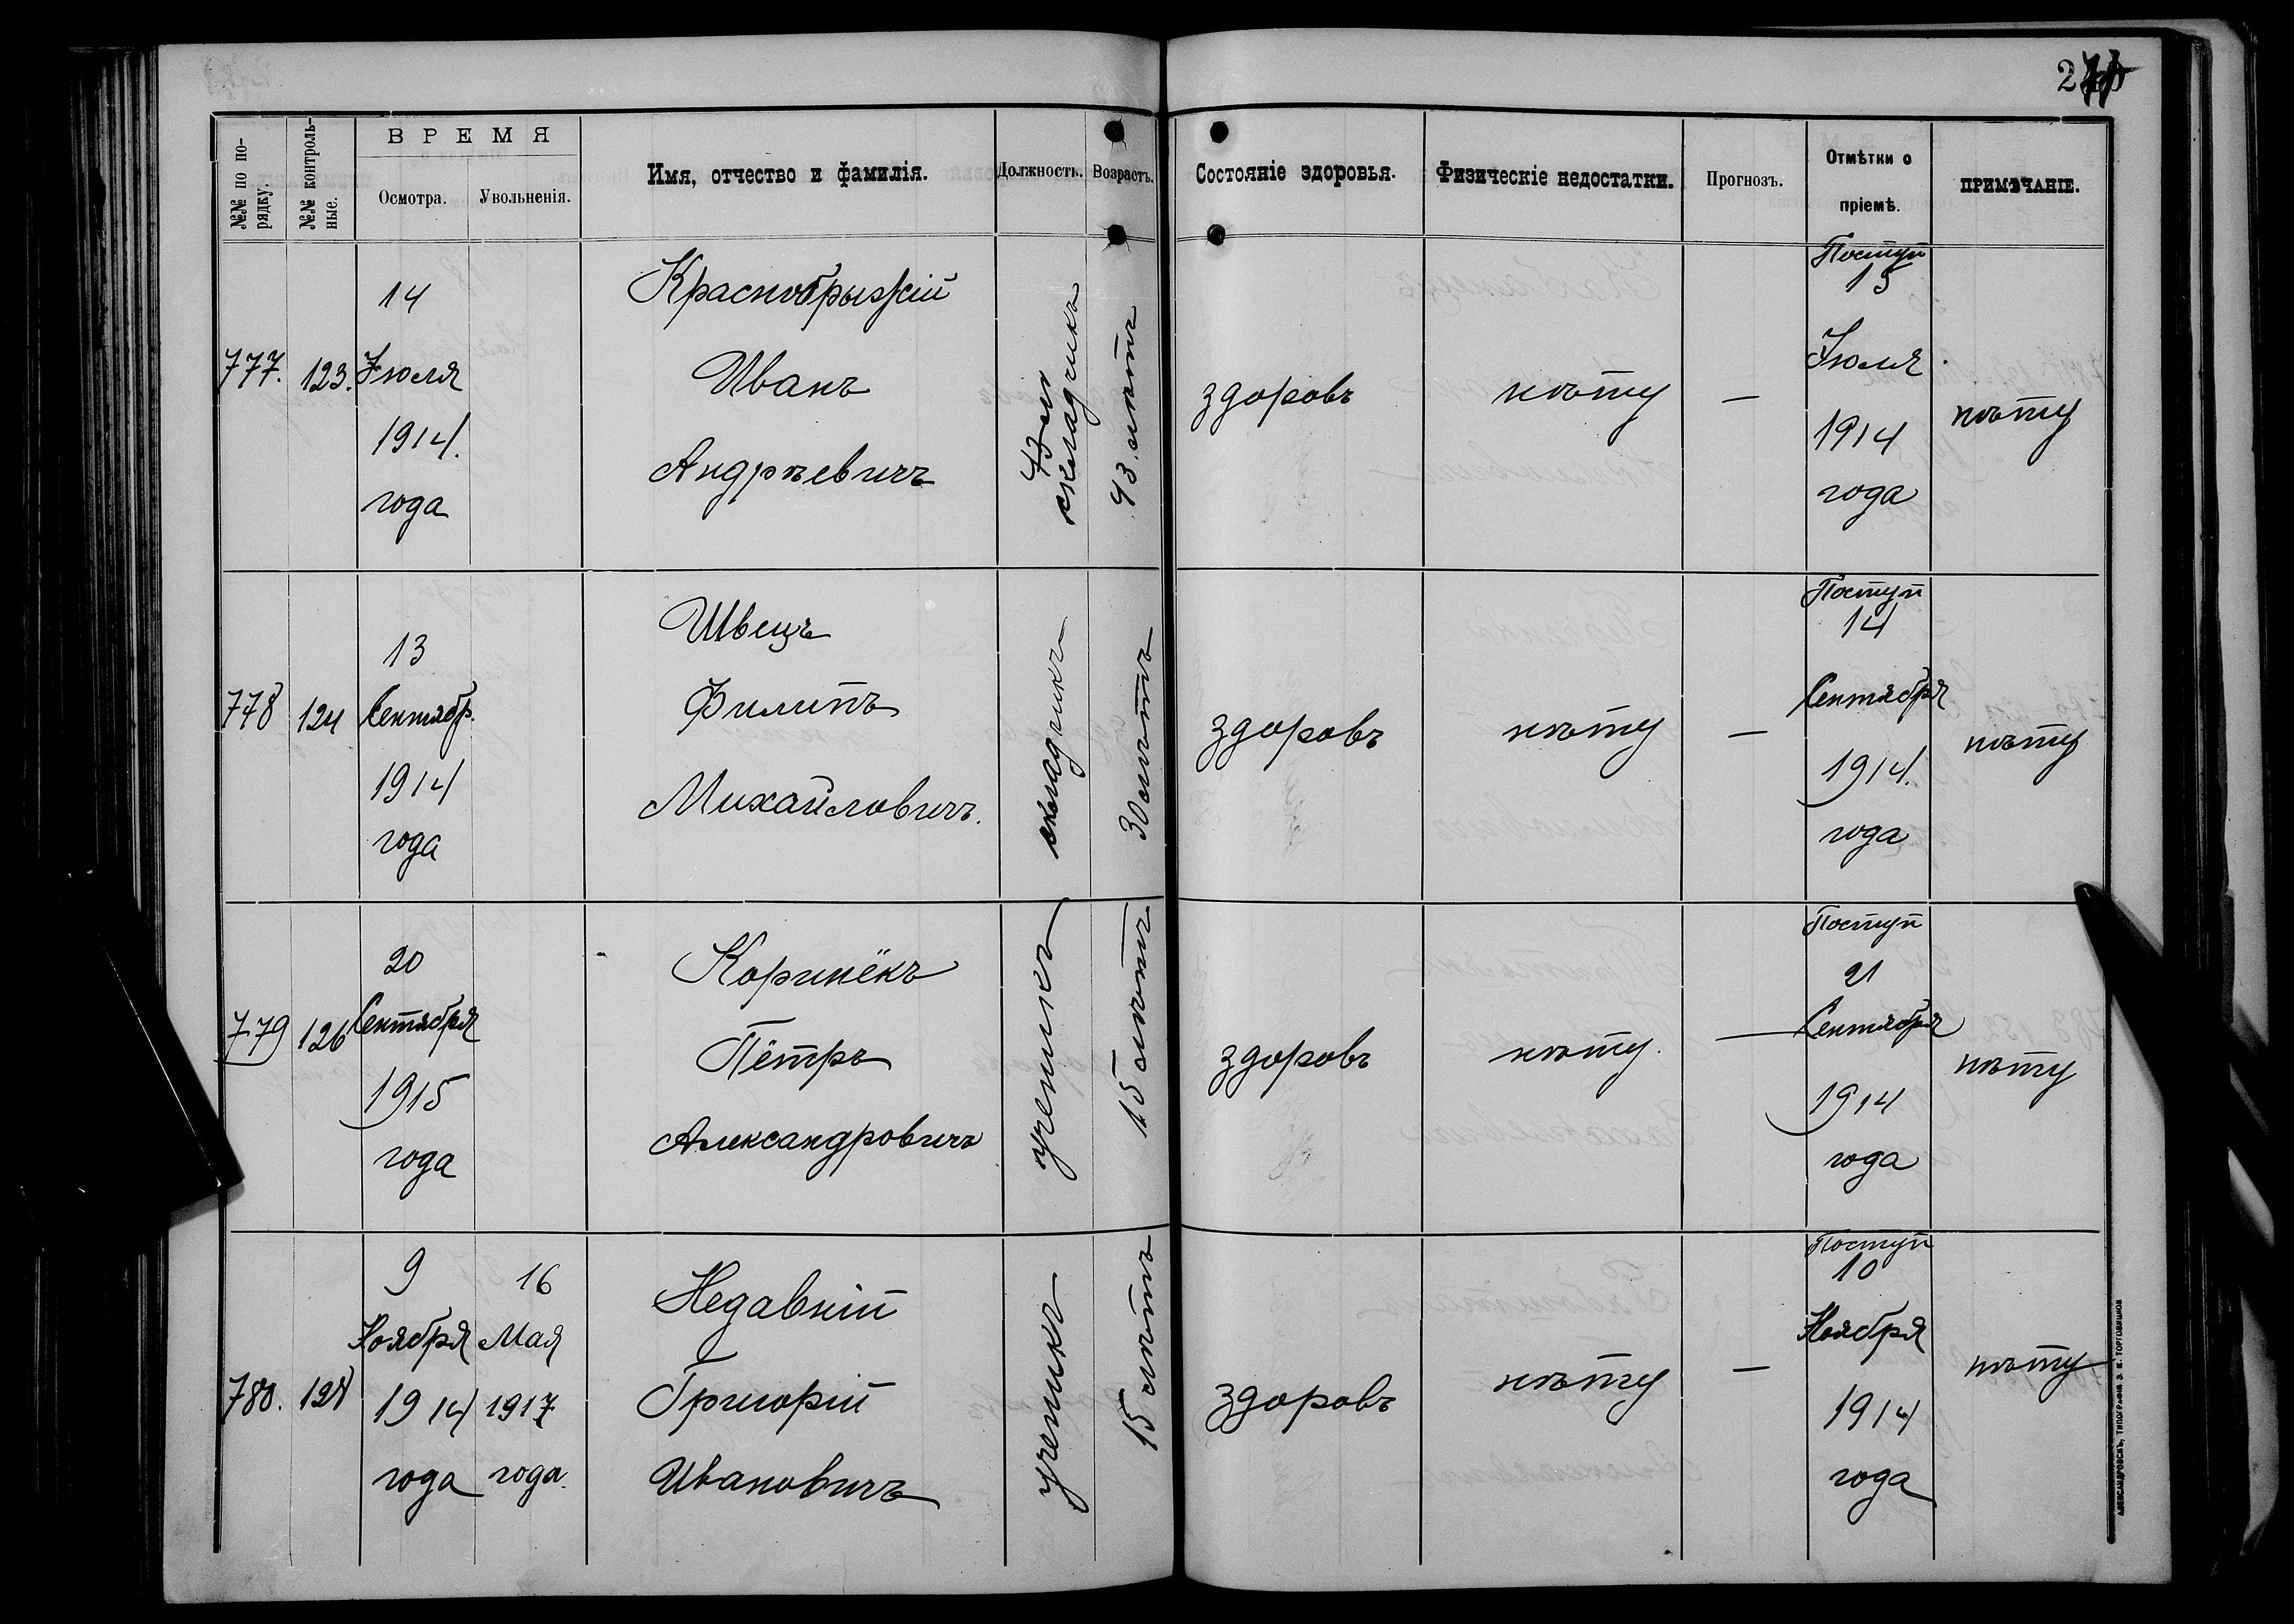 271
№№ по по-
рядку.
№№ контроль-
ные.
ВРЕМЯ
Осмотра.
Увольненія.
Имя, отчество и фамилія.
Должность.
Возрастъ.
Состояніе здоровья.
Физическіе недостатки.
Прогнозъ.
Отмѣтки о
пріемѣ.
ПРИМѢЧАНІЕ.
777.
123.
14
Іюля
1914.
года
Краснобрыжій
Иванъ
Андрѣевичъ
складчикъ
43 лѣтъ
здоровъ
нѣту
—
Поступ
15
Іюля
1914
года
нѣту
778
124
13
Сентябр.
1914
года
Швецъ
Филипъ
Михайловичъ.
складчикъ
30 лѣтъ
здоровъ
нѣту
—
Поступ
14
Сентября
1914.
года
нѣту
779
126
20
Сентября
1915
года
Коринёкъ
Пётръ
Александровичъ
ученикъ
15 лѣтъ
здоровъ
нѣту.
—
Поступ
21
Сентября
1914
года
нѣту
780.
128
9
Ноября
1914
года
16
Мая
1917
года.
Недавній
Григорій
Ивановичъ
ученикъ
15 лѣтъ
здоровъ
нѣту
—
Поступ
10
Ноября
1914
года
нѣту
АЛЕКСАНДРОВСКЪ, ТИПОГРАФІЯ Э. К. ТОРГОВИЦКОВ